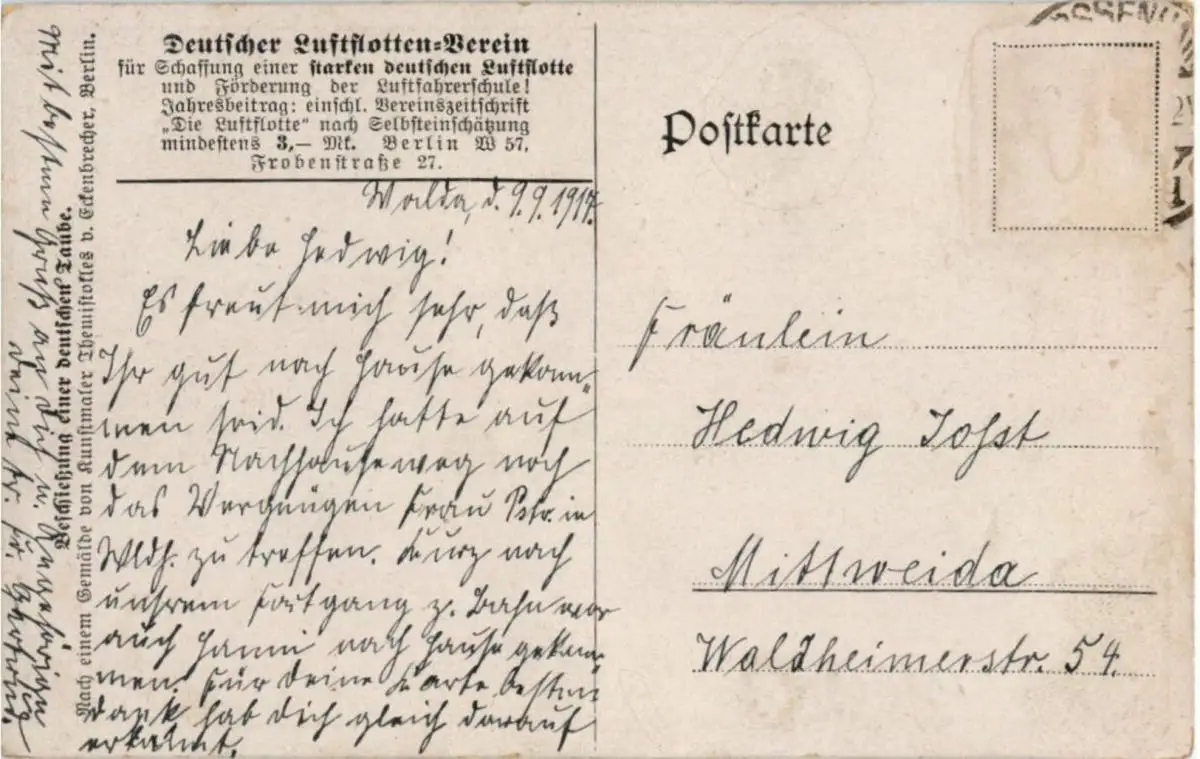 Deutscher Luftflotten=Verein
für Schaffung einer starken deutschen Luftflotte
und Förderung der Luftfahrerschule!
Jahresbeitrag: einschl. Vereinszeitschrift
„Die Luftflotte" nach Selbsteinschätzung
mindestens 3,— Mk. Berlin W 57,
Frobenstraße 27.
Walda, d. 9.9.1917.
Liebe Hedwig!
Es freut mich sehr, daß
Ihr gut nach Hause gekom=
men seid. Ich hatte auf
dem Nachhauseweg noch
das Vergnügen Frau in
Wldh. zu treffen. Kurz nach
unsrem Fortgang z. Bahn war
auch Hanni nach Hause gekom=
men. Für Deine Karte besten
Dank hab Dich gleich darauf
erkannt.
Mit bestem Gruß an Dich u. Angehörigen
Deine
Beschießung einer deutschen Taube.
Nach einem Gemälde von Kunstmaler Themistokles v. Eckenbrecher, Berlin.
Postkarte
Fräulein
Hedwig Johst
Mittweida
Waldheimerstr. 54.